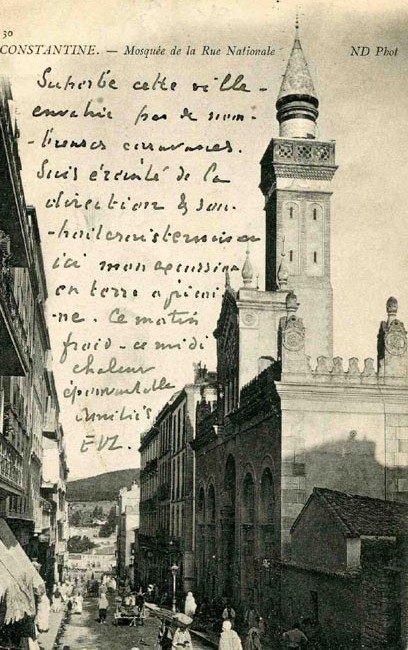 30
CONSTANTINE. — Mosquée de la Rue Nationale
ND Phot
Superbe cette ville
envahie par de nom-
-breuses caravanes.
Suis éreinté de la
direction & sou-
-haiterais terminer
ici mon excursion
en terre africai
-ne. Ce matin
froid - ce midi
chaleur
épouvantable
Amitiés